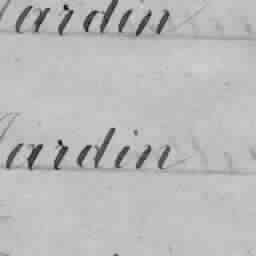 Jardin
Jardin